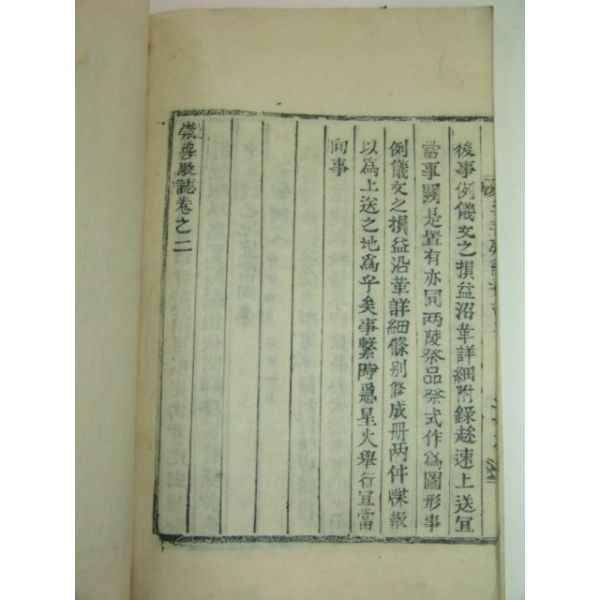 後事例儀文之損益沿革詳細附錄趁速上送宜
當事關是置有亦同两陵祭品祭式作爲圖形事
例儀文之損益沿革詳細條別修成册两件牒報
以爲上送之地爲乎矣事繫時急星火擧行宜當
向事
崇善殿誌卷之二